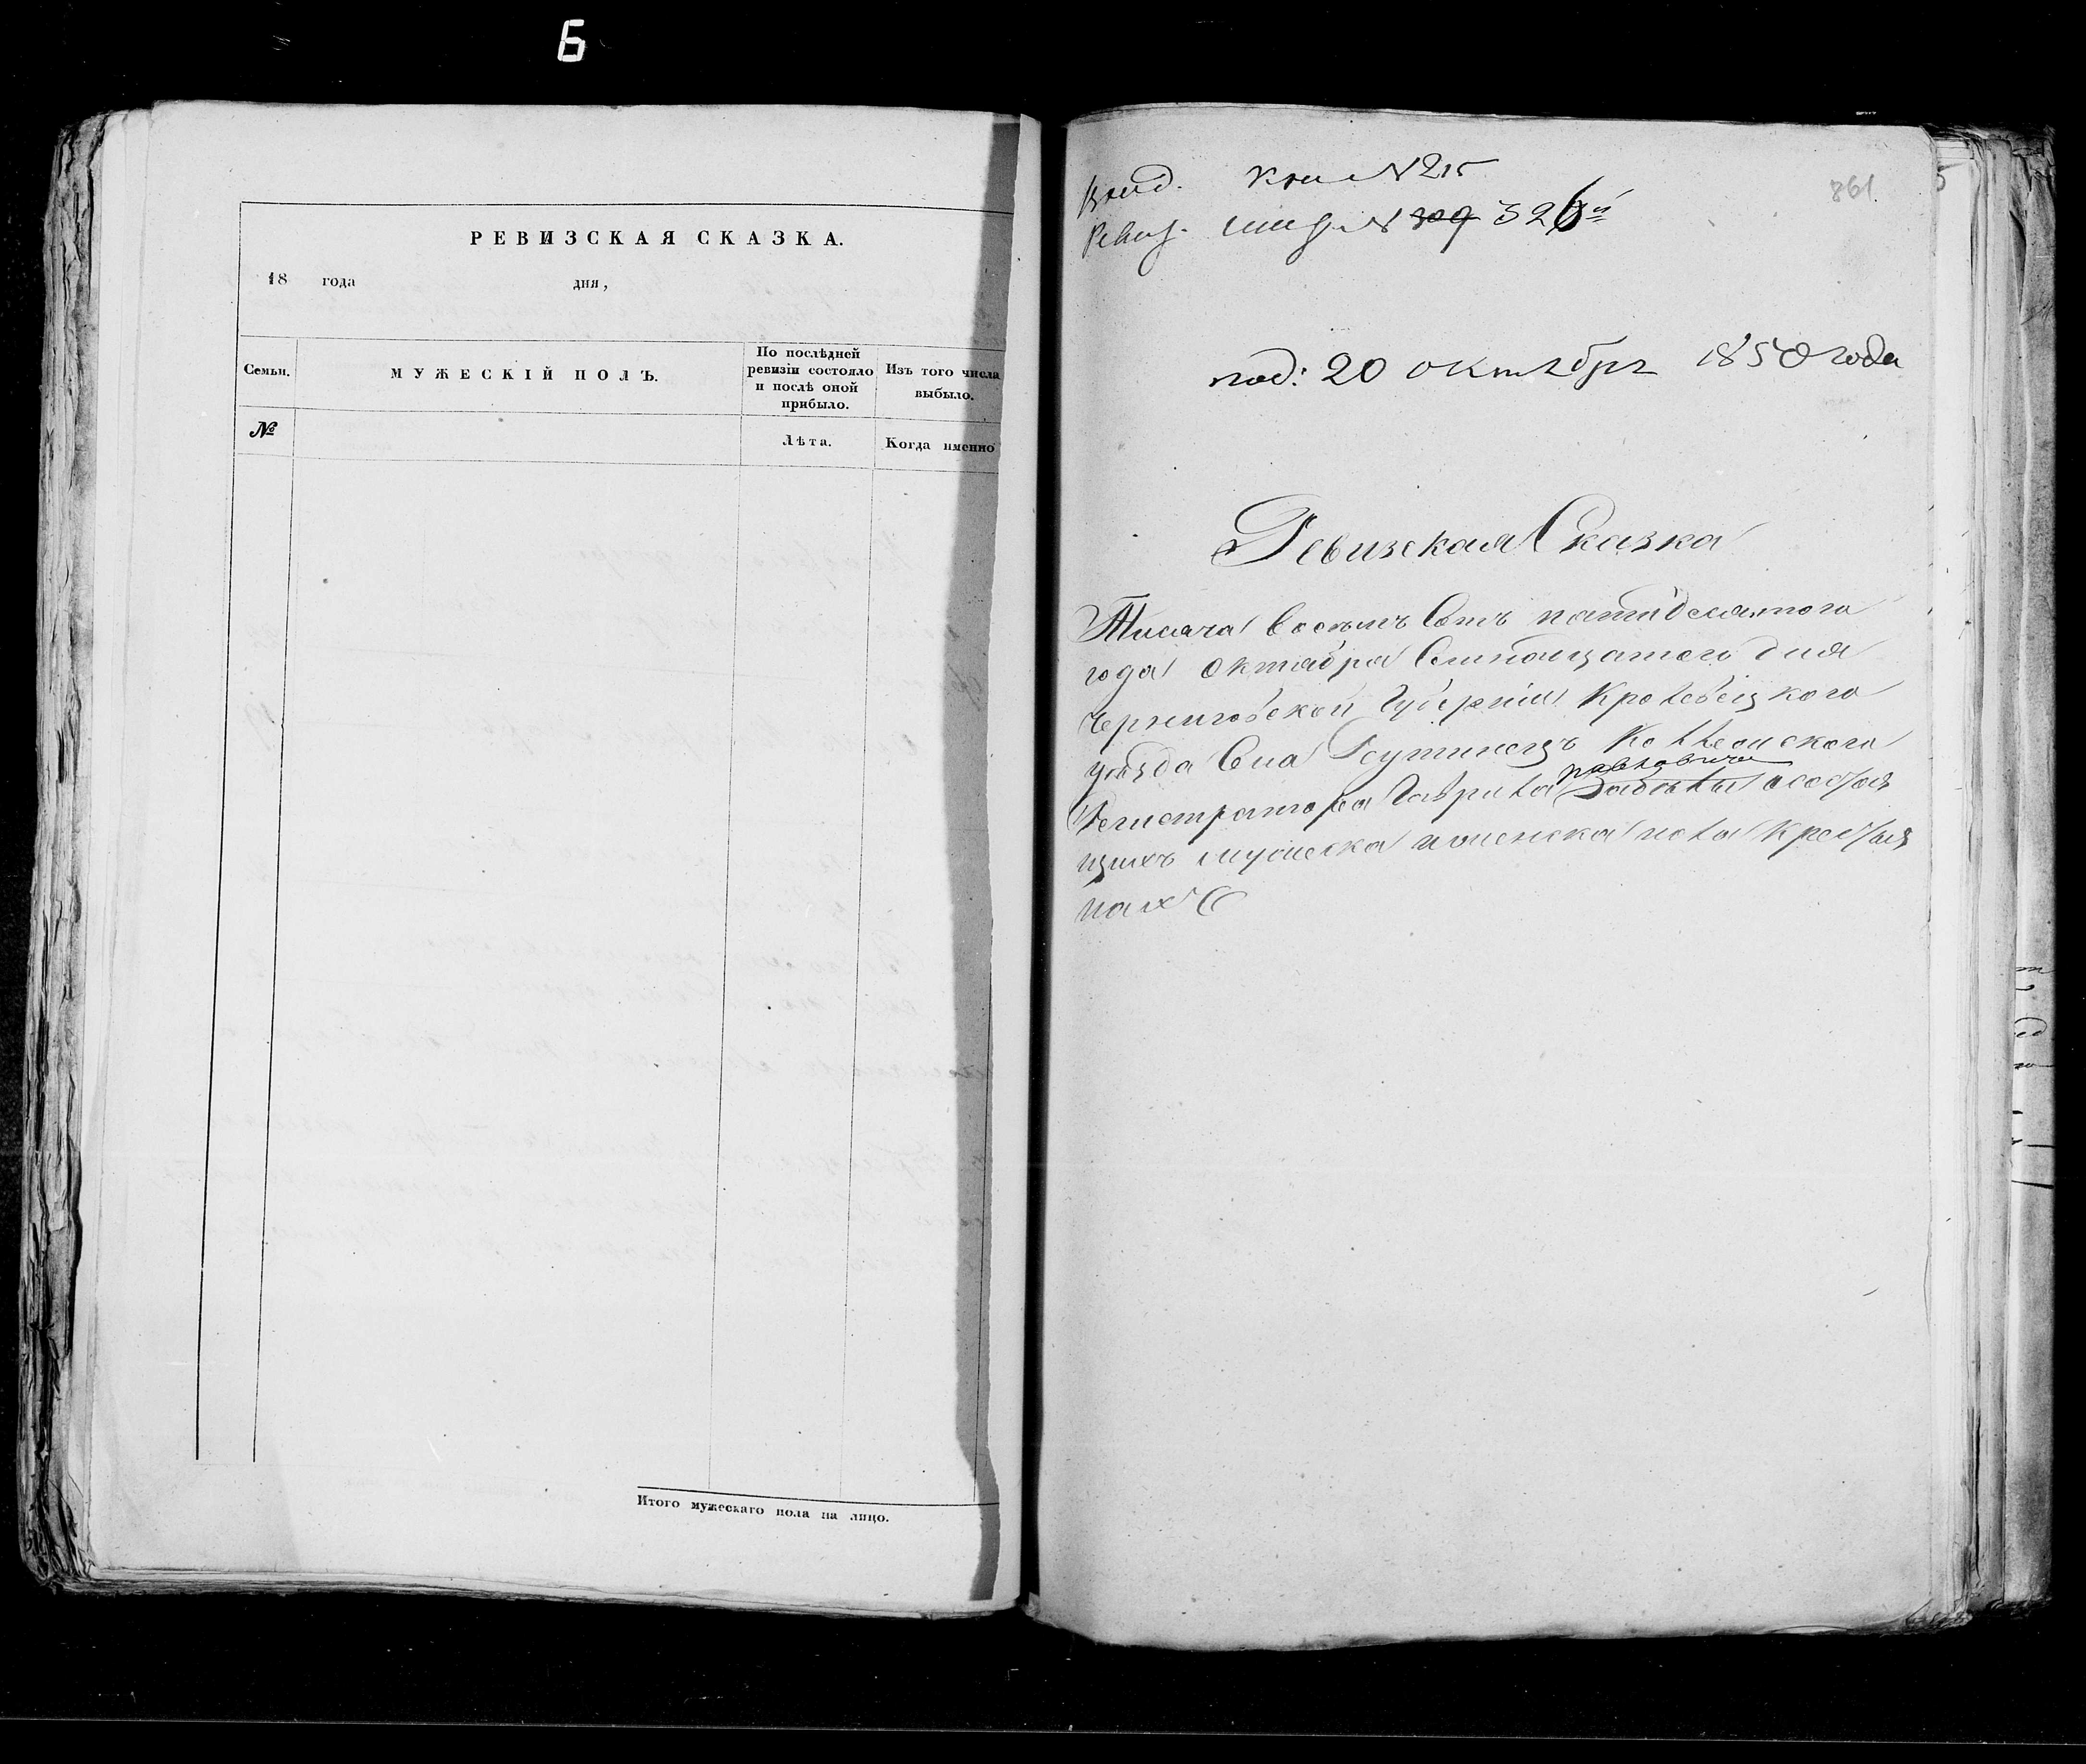 Б
РЕВИЗСКАЯ СКАЗКА.
18 года дня,
Семьи.
МУЖЕСКІЙ ПОЛЪ.
По послѣдней
ревизіи состояло
и послѣ оной
прибыло.
Изъ того числа
выбыло.
№
Лѣта.
Когда именно
Итого мужескаго пола на лицо.
861
№ 309 326й
под: 20 октября 1850 года
Ревизская Сказка
Тисяча восемъ сотъ пятидесятого
года октября семнацатого дня
Черниговской Губерніи Кролевецкого
уезда села Реутинецъ Коллежского
павловича
Регистратора Гаврила Забѣлы о состоя
щихъ мужеска и женска пола крестья
нахъ